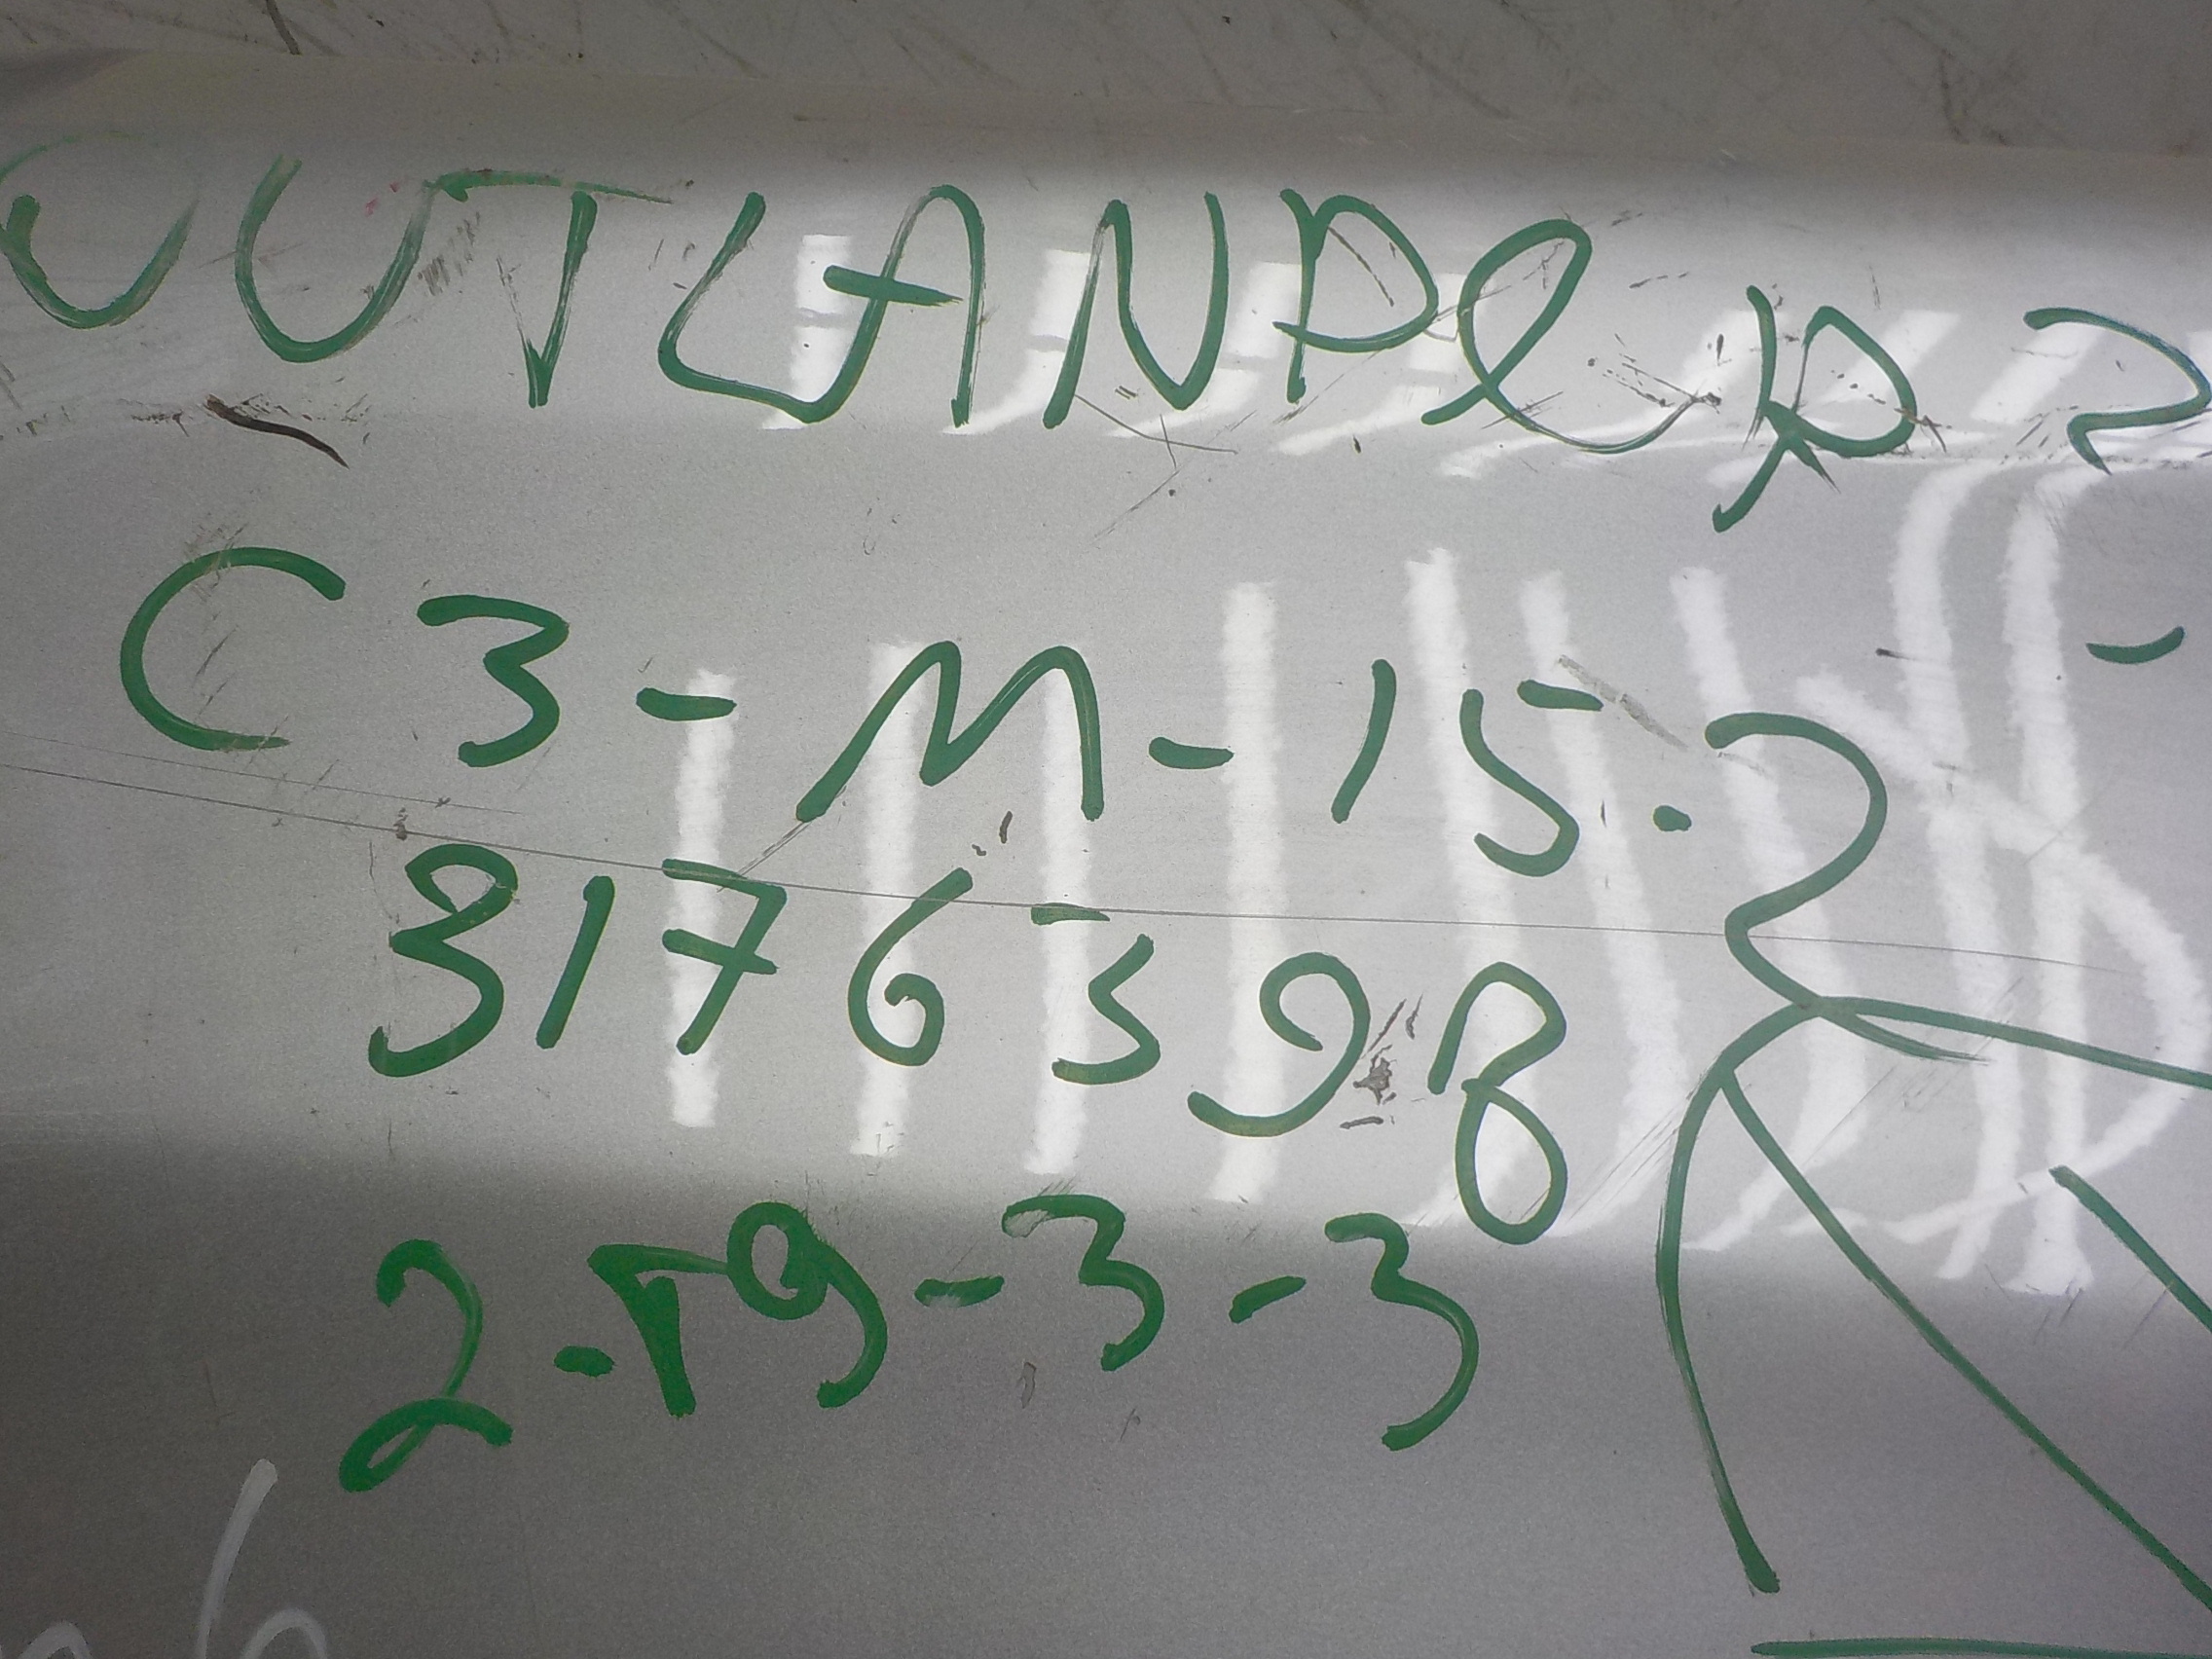 OUTLANDeR 2
C3-M-15.2
3176598
2-19-3-3